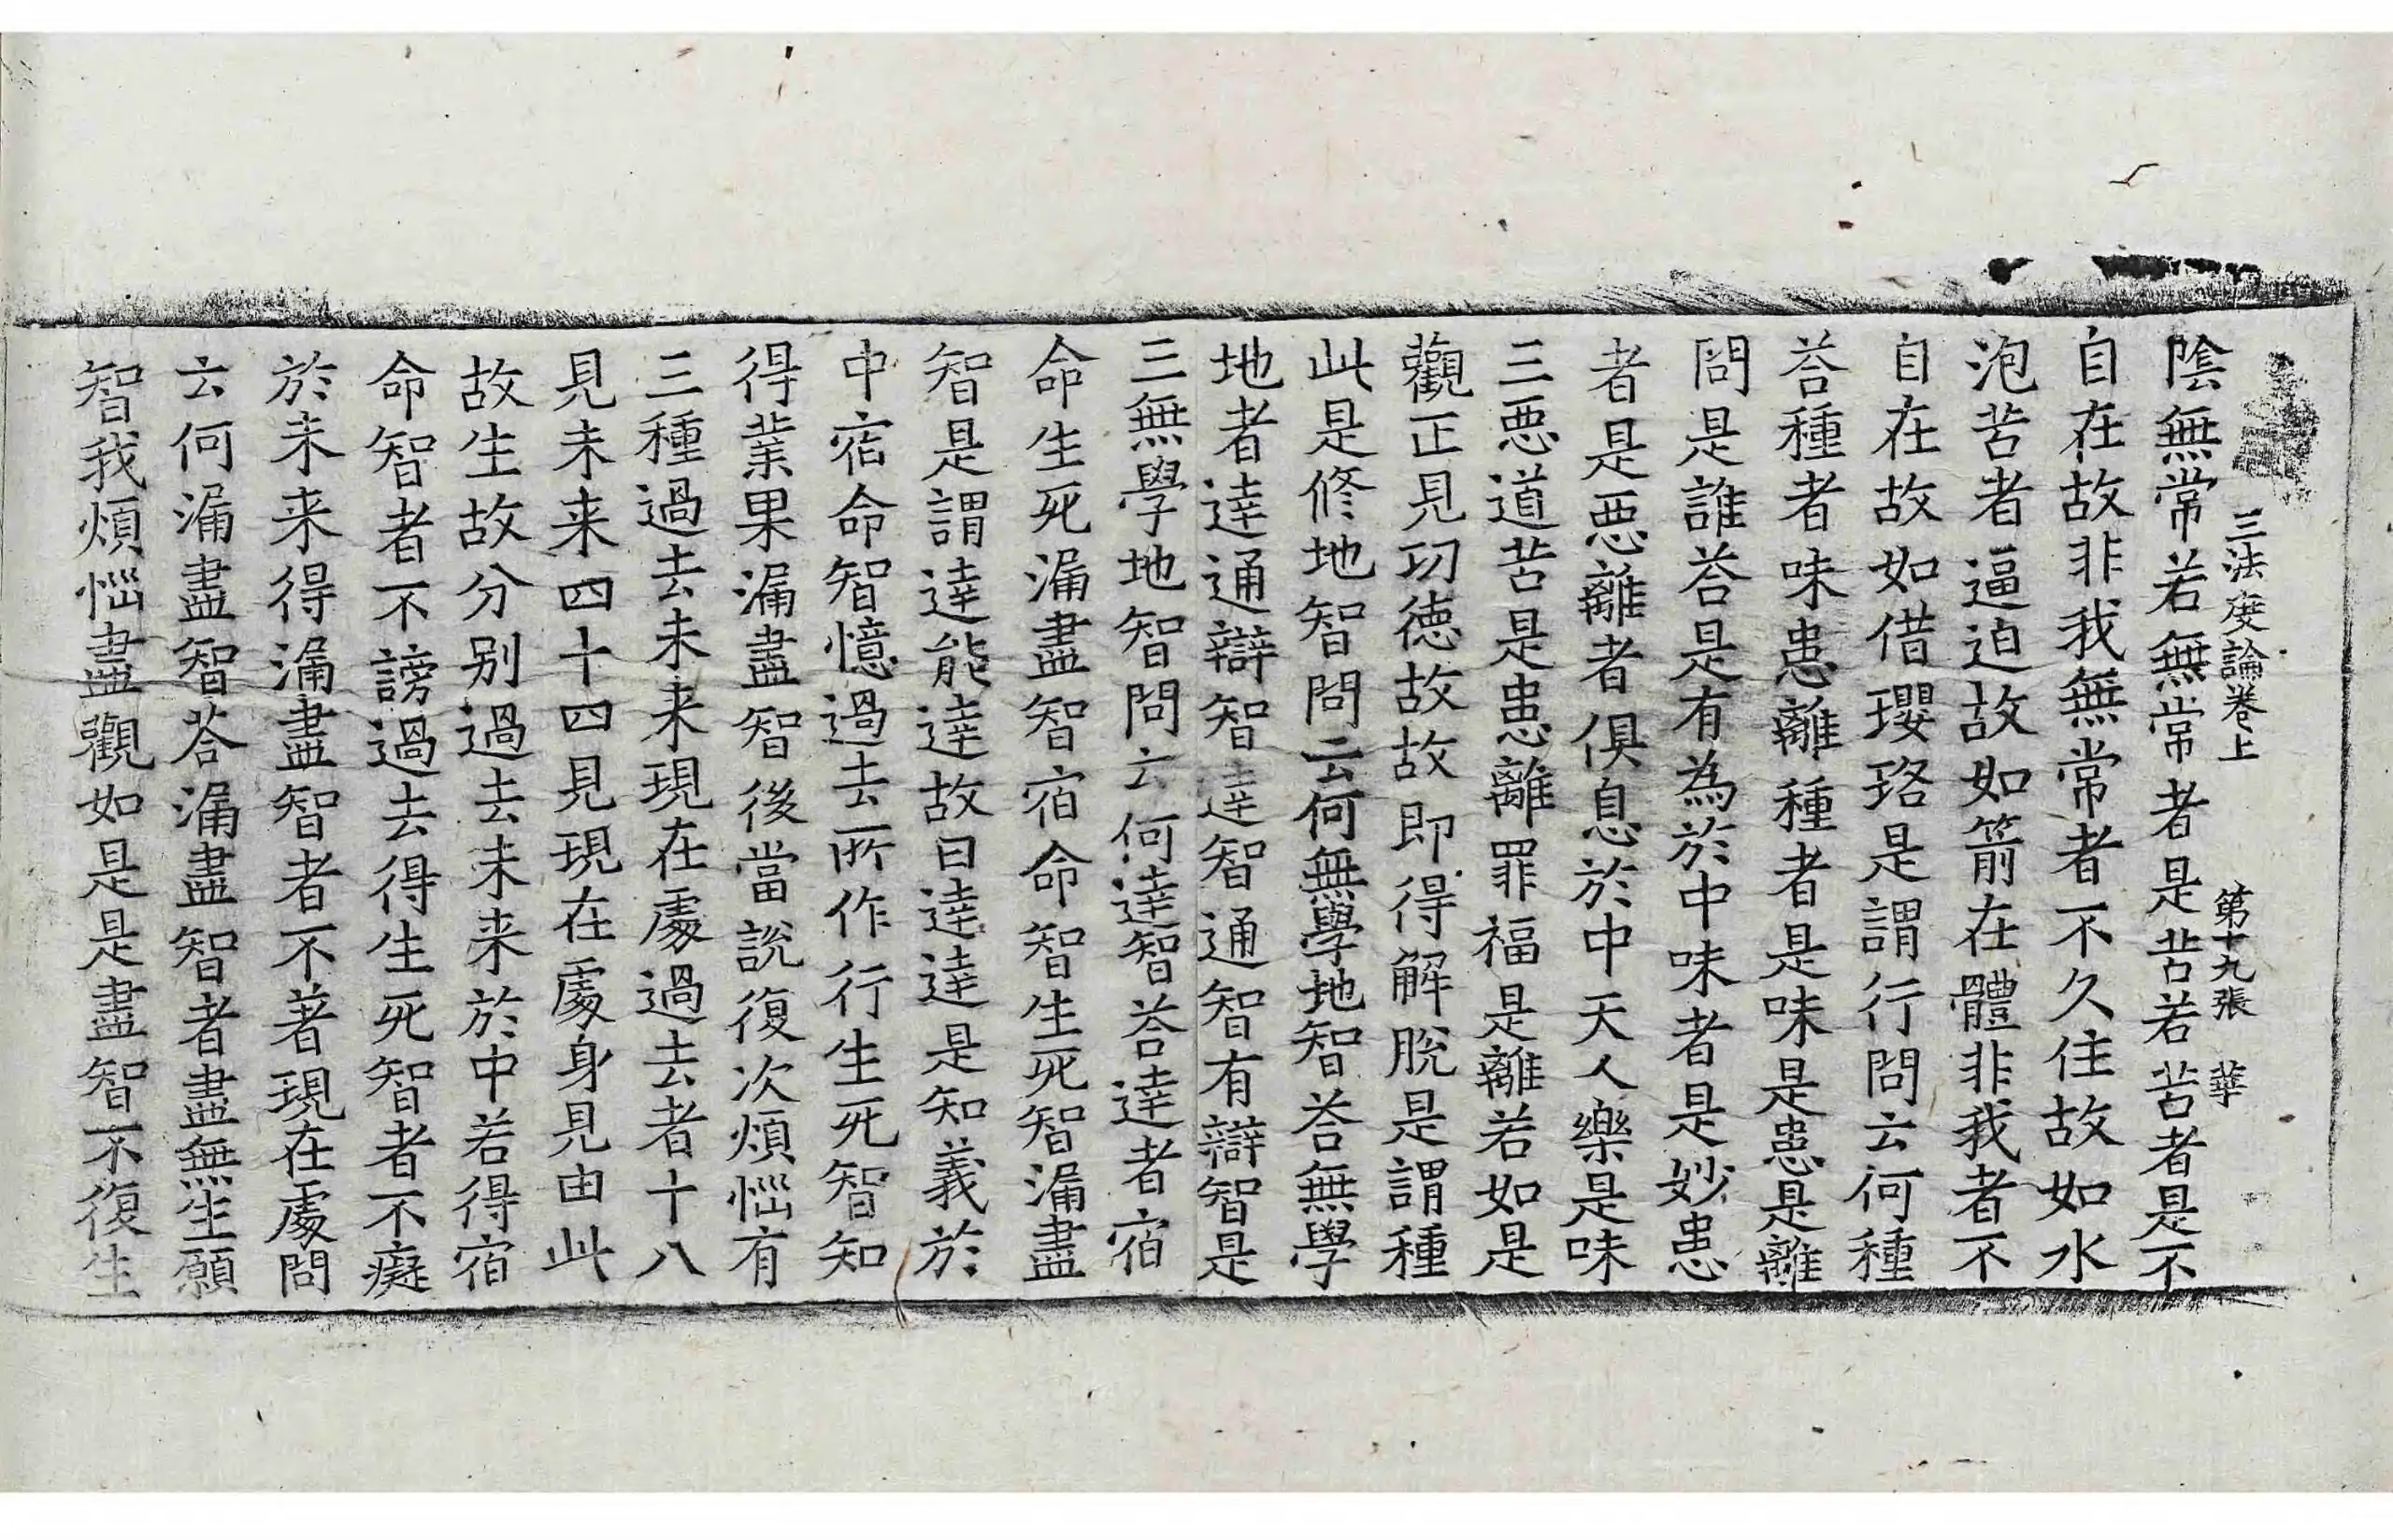 三法度論卷上　第十九張　華
陰無常若無常者是苦若苦者是不
自在故非我無常者不久住故如水
泡苦者逼迫故如箭在體非我者不
自在故如借瓔珞是謂行問云何種
荅種者味患離種者是味是患是離
問是誰荅是有為於中味者是妙患
者是惡離者俱息於中天人樂是味
三惡道苦是患離罪福是離若如是
觀正見功德故故即得解脫是謂種
此是修地智問云何無學地智荅無學
地者達通辯智達智通智有辯智是
三無學地智問云何達智荅達者宿
命生死漏盡智宿命智生死智漏盡
智是謂達能達故曰達達是知義於
中宿命智憶過去所作行生死智知
得業果漏盡智後當說復次煩惱有
三種過去未来現在處過去者十八
見未来四十四見現在處身見由此
故生故分別過去未来於中若得宿
命智者不謗過去得生死智者不癡
於未来得漏盡智者不著現在處問
云何漏盡智荅漏盡智者盡無生願
智我煩惱盡觀如是是盡智不復生